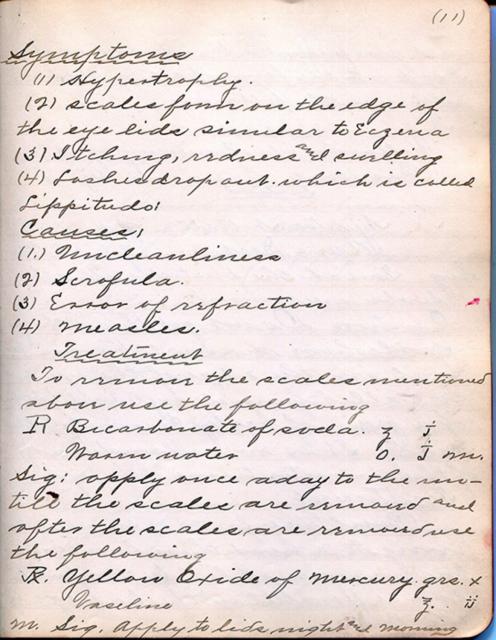 (11)
Symptoms
(1) Hypertrophy.
(2) scales form on the edge of
the eye lids similar to Eczema
(3) Itching, redness and swelling
(4) Lashes drop out. which is called
Lippitudo.
Causes,
(1.) Uncleanliness
(2) Scrofula.
(3) Error of refraction
(4) Measles.
Treatment
To remove the scales mentioned
above use the following
℞ Bicarbonate of soda. ʒ j
Warm water O. j m.
Sig: apply once a day to the
till the scales are removed and
after the scales are removed use
the following
℞. Yellow Oxide of Mercury grs. x
Vaseline ʒ.. ij
m. Sig. Apply to lids night and morning